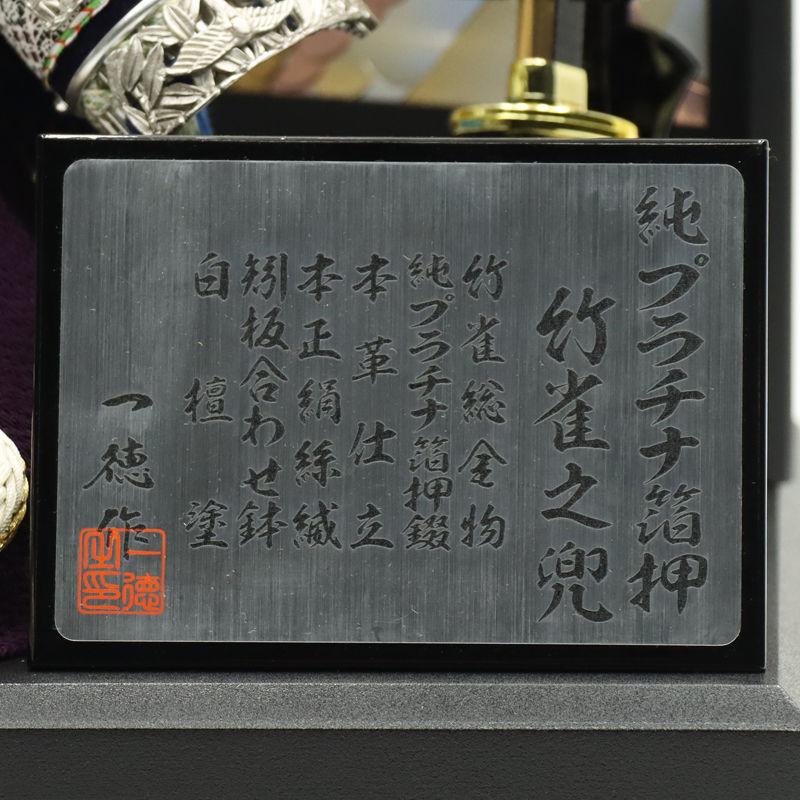 純プラチナ箔押
竹雀之兜
竹雀総金物
純プラチナ箔押錣
本革仕立
本正絹絲縅
矧板合わせ鉢
白檀塗
一徳作
一徳之印